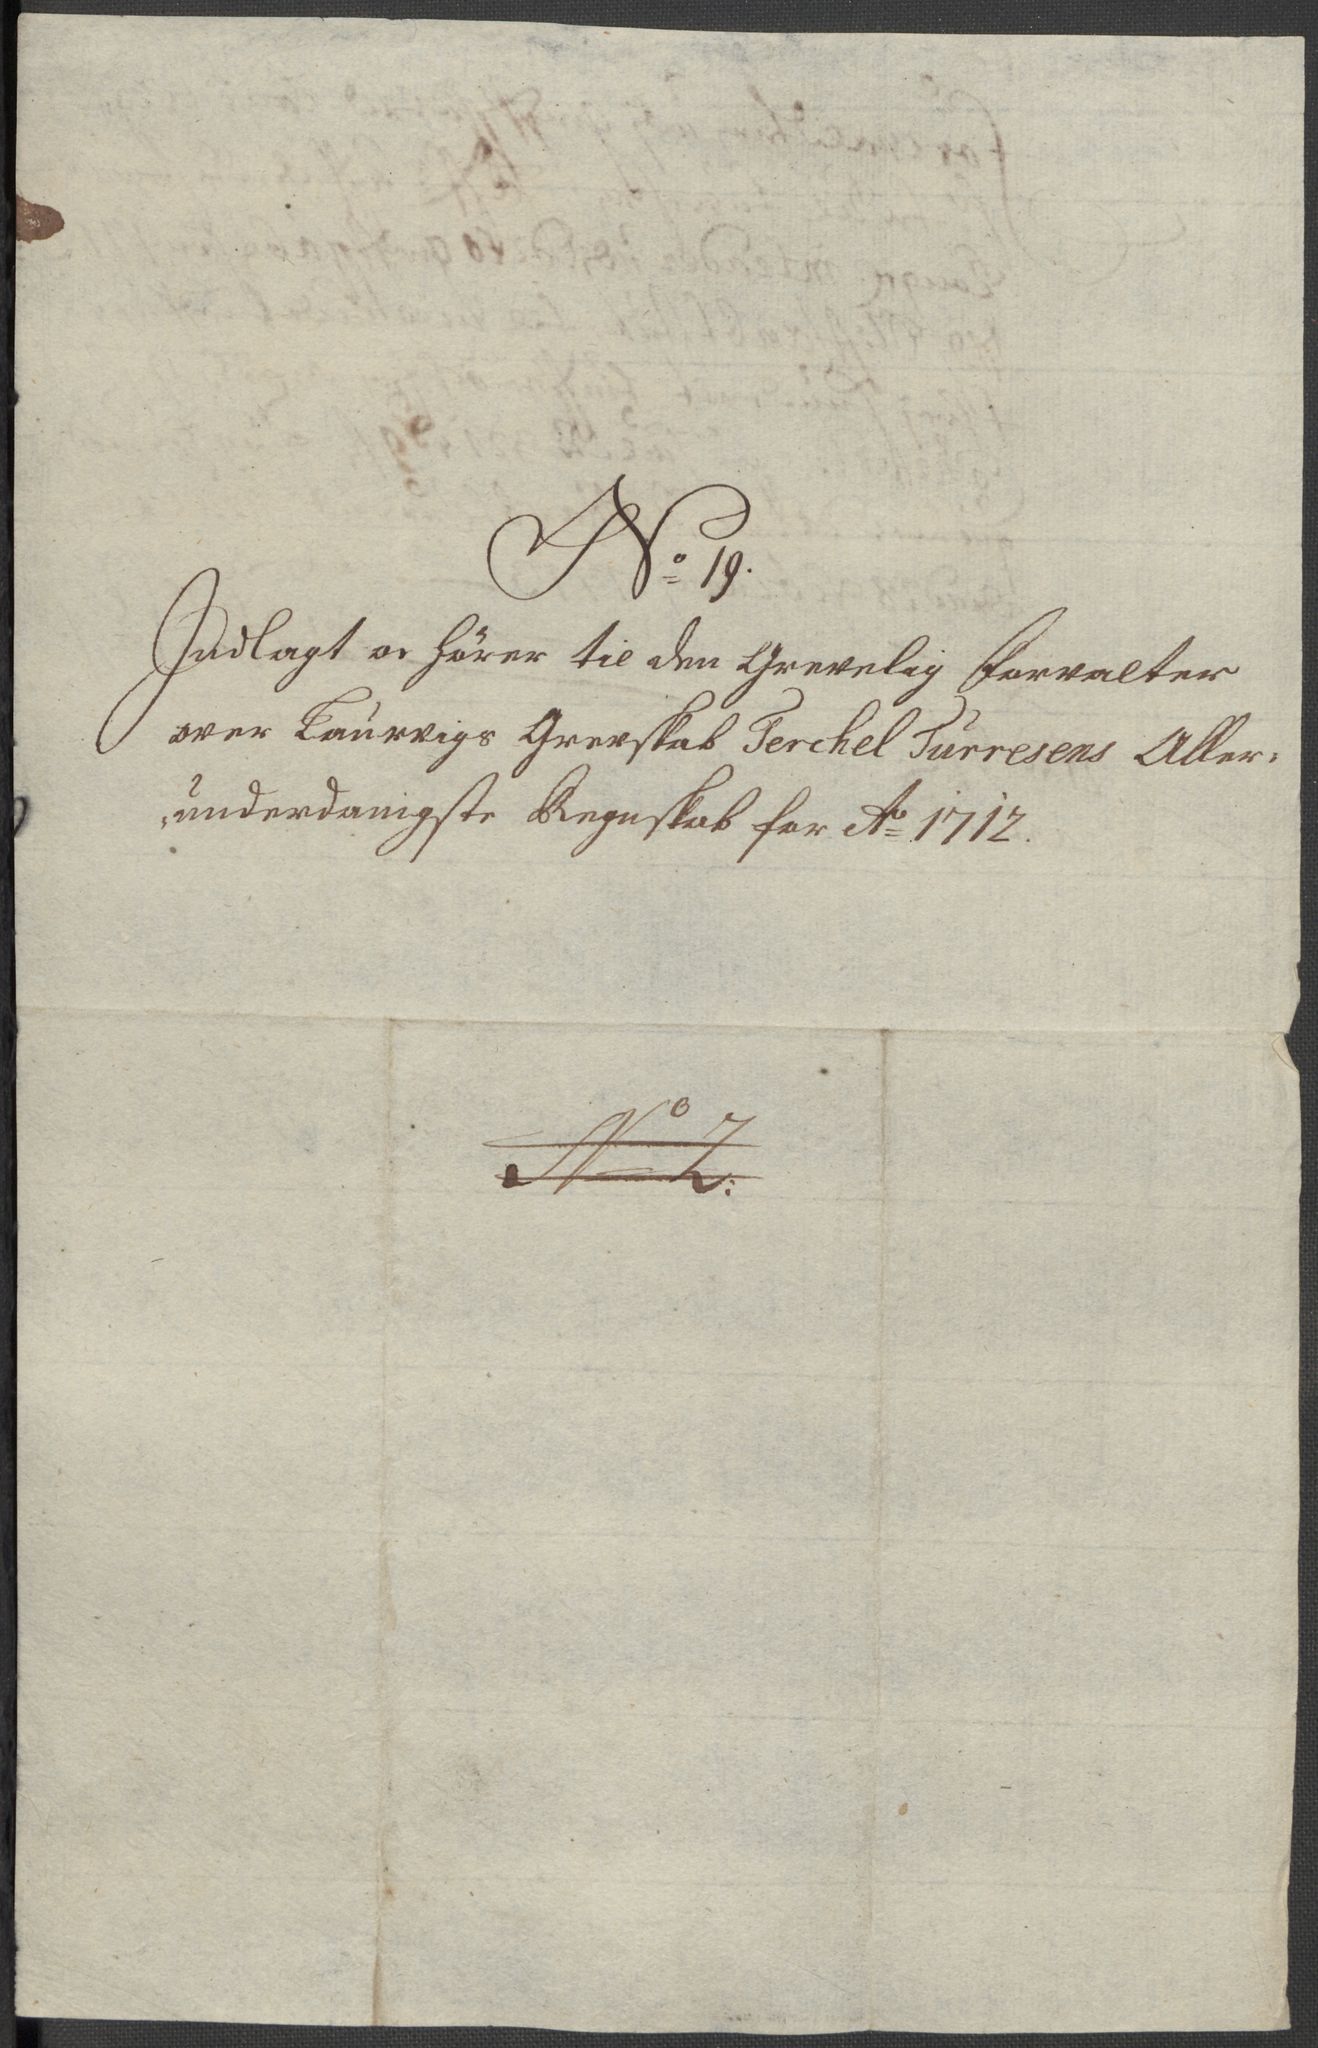 No 19.
Indlagt oc hörer til den Grevelig Forvalter
over Laurvigs Grevskab Terchel Turresens Aller-
underdanigste Regnskab for Ao 1712.
No 2: